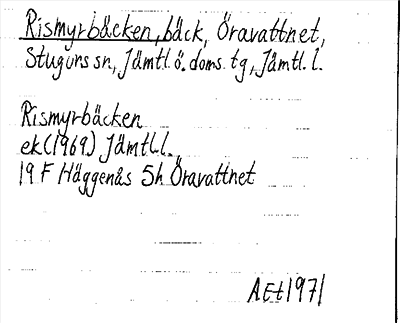 Rismyrbäcken, bäck, Öravattnet,
Stuguns sn, Jämtl. ö. doms. tg, Jämtl. l.
Rismyrbäcken
ek (1969) Jämtl. l.
19 F Häggenås 5h Öravattnet
AEt 1971